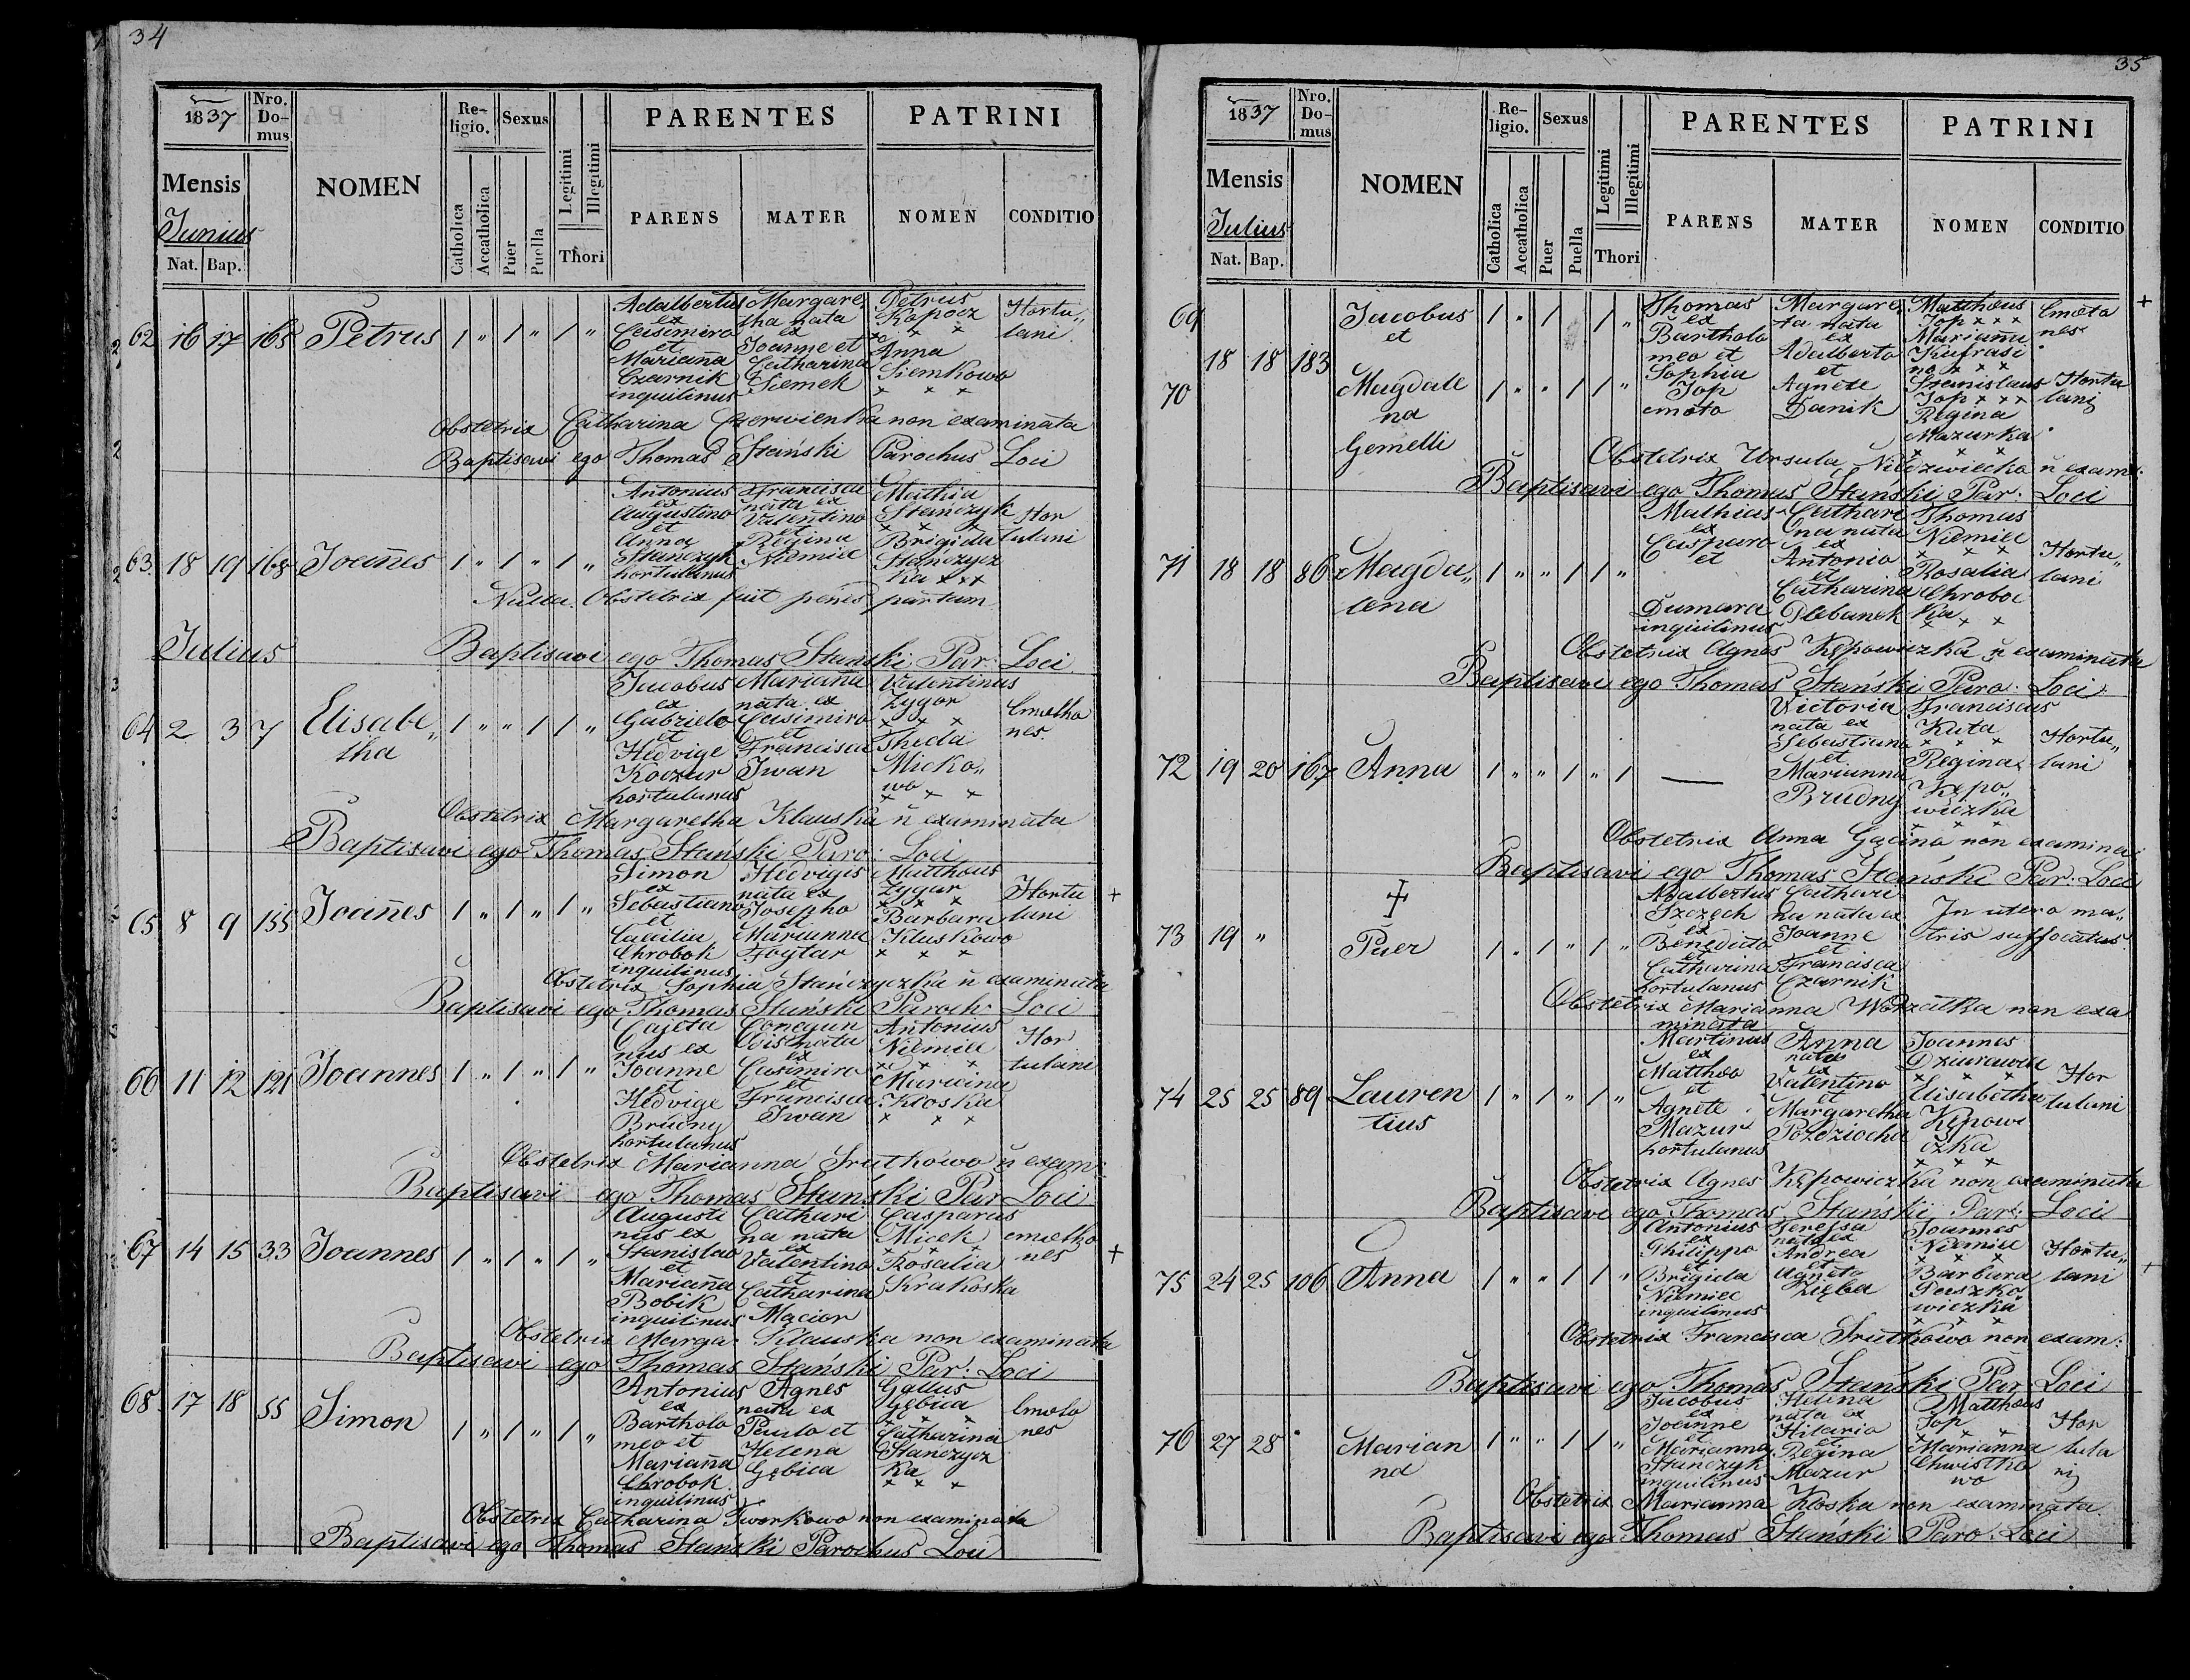 34
1837
Nro. Domus
NOMEN
Religio.
Sexus
Legitimi
Illegitimi
Thori
PARENTES
PATRINI
Mensis
Junius
Nat. Bap.
Catholica
Accatholica
Puer
Puella
PARENS
MATER
NOMEN
CONDITIO
62 16 17 168 Petrus 1 " 1 " 1 "
Adalbertus
ex
Casimiro
et
Mariana
Czarnik
inquilinus
Margare
tha nata
ex
Joanne et
Catharina
Siemek
Petrus
Kapocz
x x x
Anna
Siemkowa
x x x
Hortu„
lani
Obstetrix Catharina Czerwienka non examinata
Baptisavi ego Thomas Stański Parochus Loci
63 18 19 168 Joañes 1 " 1 " 1 "
Antonius
ex
Augustino
et
Anna
Stanczyk
hortulanus
Francisca
nata ex
Valentino
et
Regina
Niemiec
Mathia
Stańczyk
x x x
Brigida
Stańczycz
ka x x x
Hor
tulani
Nulla Obstetrix fuit penes partum
Julius
Baptisavi ego Thomas Stański Par: Loci
64 2 3 7 Elisabe„
tha 1 " " 1 1 "
Jacobus
ex
Gabriele
et
Hedvige
Koczur
hortulanus
Mariaña
nata ex
Casimiro
et
Francisca
Iwan
Valentinus
Zygor
x x x
Thecla
Micko„
wa
x x x
Cmetho
nes
Obstetrix Margaretha Klauska ñ examinata
Baptisavi ego Thomas Stański Paro: Loci
65 8 9 155 Joañes 1 " 1 " 1 " +
Simon
ex
Sebastiano
et
Caecilia
Chrobok
inquilinus
Hedvigis
nata ex
Josepho
et
Marianna
Foytar
Matthæus
Zygar
x x x
Barbara
Kluskowa
x x x
Hortu
lani
Obstetrix Sophia Stańczyczka ñ examinata
Baptisavi ego Thomas Stański Paroch: Loci
66 11 12 121 Joannes 1 " 1 " 1 "
Cajeta
nus ex
Joanne
et
Hedvige
Brudny
hortulanus
Conegun
dis nata
ex
Casimiro
et
Francisca
Iwan
Antonius
Niemiec
x x x
Mariana
Kloska
x x x
Hor
tulani
Obstetrix Marianna Srutkowa ñ exam:
Baptisavi ego Thomas Stański Par Loci
67 14 15 33 Joannes 1 " 1 " 1 " +
Augusti
nus ex
Stanislao
et
Mariaña
Bobik
inquilinus
Cathari
na nata
ex
Valentino
et
Catharina
Mącior
Casparus
Micek
x x x
Rosalia
Krakoska
cmetho
nes
Obstetrix Marga: Klauska non examinata
Baptisavi ego Thomas Stański Par: Loci
68 17 18 55 Simon 1 " 1 " 1 "
Antonius
ex
Bartholo
meo et
Mariaña
Chrobok
inquilinus
Agnes
nata ex
Paulo et
Helena
Gębica
Gallus
Gębica
x x x
Catharina
Stanczycz
ka
x x x
Cmeto
nes
Obstetrix Catharina Tworkowa non examinata
Baptisavi ego Thomas Stański Parochus Loci
35
1837
Nro. Domus
NOMEN
Religio.
Sexus
Legitimi
Illegitimi
Thori
PARENTES
PATRINI
Mensis
Julius
Nat. Bap.
Catholica
Accatholica
Puer
Puella
PARENS
MATER
NOMEN
CONDITIO
69 Jacobus 1 " 1 1 " +
et
18 18 183
70 Magdale 1 " " 1 1 "
na
Gemelli
Thomas
ex
Bartholo
meo et
Sophia
Jop
cmeto
Margare
ta nata
ex
Adalberto
et
Agnete
Danik
Matthæus
Jop x x x
Stanislaus
Jop x x x
Regina
Mazurka
x x x
Cmeto
nes
Hortu
lani
Obstetrix Ursula Niedzwiecka ñ exam:
Baptisavi ego Thomas Stański Par: Loci
71 18 18 86 Magda„
lena 1 " " 1 1 "
Mathias
ex
Casparo
et
Dumara
inquilinus
Cathari
na nata
ex
Antonio
et
Catharina
Plebanek
Thomas
Niemiec
x x x
Rosalia
Chroboc
ka
x x x
Hortu„
lani
Obstetrix Agnes Kępowiczka ñ examinata
Baptisavi ego Thomas Stański Paro: Loci
72 19 20 167 Anna 1 " " 1 " 1
Victoria
nata ex
Sebastiano
et
Marianna
Brudny
Franciscus
Kuta
x x x
Regina
Kępo„
wiczka
x x x
Hortu„
lani
Obstetrix Anna Gącina non examina
Baptisavi ego Thomas Stański Par: Loci
73 19 " Puer 1 " 1 " 1 "
Adalbertus
Szczęch
ex
Benedicto
et
Catharina
hortulanus
Cathari
na nata ex
Joanne
et
Francisca
Czarnik
In utero ma„
tris suffocatus
Obstetrix Marianna Worzalka non exa
minata
74 25 25 89 Lauren
tius 1 " 1 " 1 "
Martinus
ex
Matthæo
et
Agnete
Mazur
hortulanus
Anna
nata
ex
Valentino
et
Margaretha
Pozdziocha
Joannes
Dziurawiec
x x x
Elisabetha
Kępowi
czka
x x x
Hor
tulani
Obstetrix Agnes Kępowiczka non examinata
Baptisavi ego Thomas Stański Par: Loci
75 24 25 106 Anna 1 " " 1 1 " +
Antonius
ex
Philippo
et
Brigida
Niemiec
inquilinus
Teressa
nata ex
Andrea
et
Agneta
Zięba
Joannes
Niemiec
x x x
Barbara
Paszko
wiczka
x x x
Hortu„
lani
Obstetrix Francisca Srutkowa non exam:
Baptisavi ego Thomas Stański Par Loci
76 27 28 " Marian
na 1 " " 1 1 "
Jacobus
ex
Joanne
et
Marianna
Stańczyk
inquilinus
Helena
nata ex
Hilario
et
Regina
Mazur
Matthæus
Jop
x x x
Marianna
Chwistko
wa
Hor
tula
nij
Obstetrix Marianna Kloska non examinata
Baptisavi ego Thomas Stański Paro: Loci